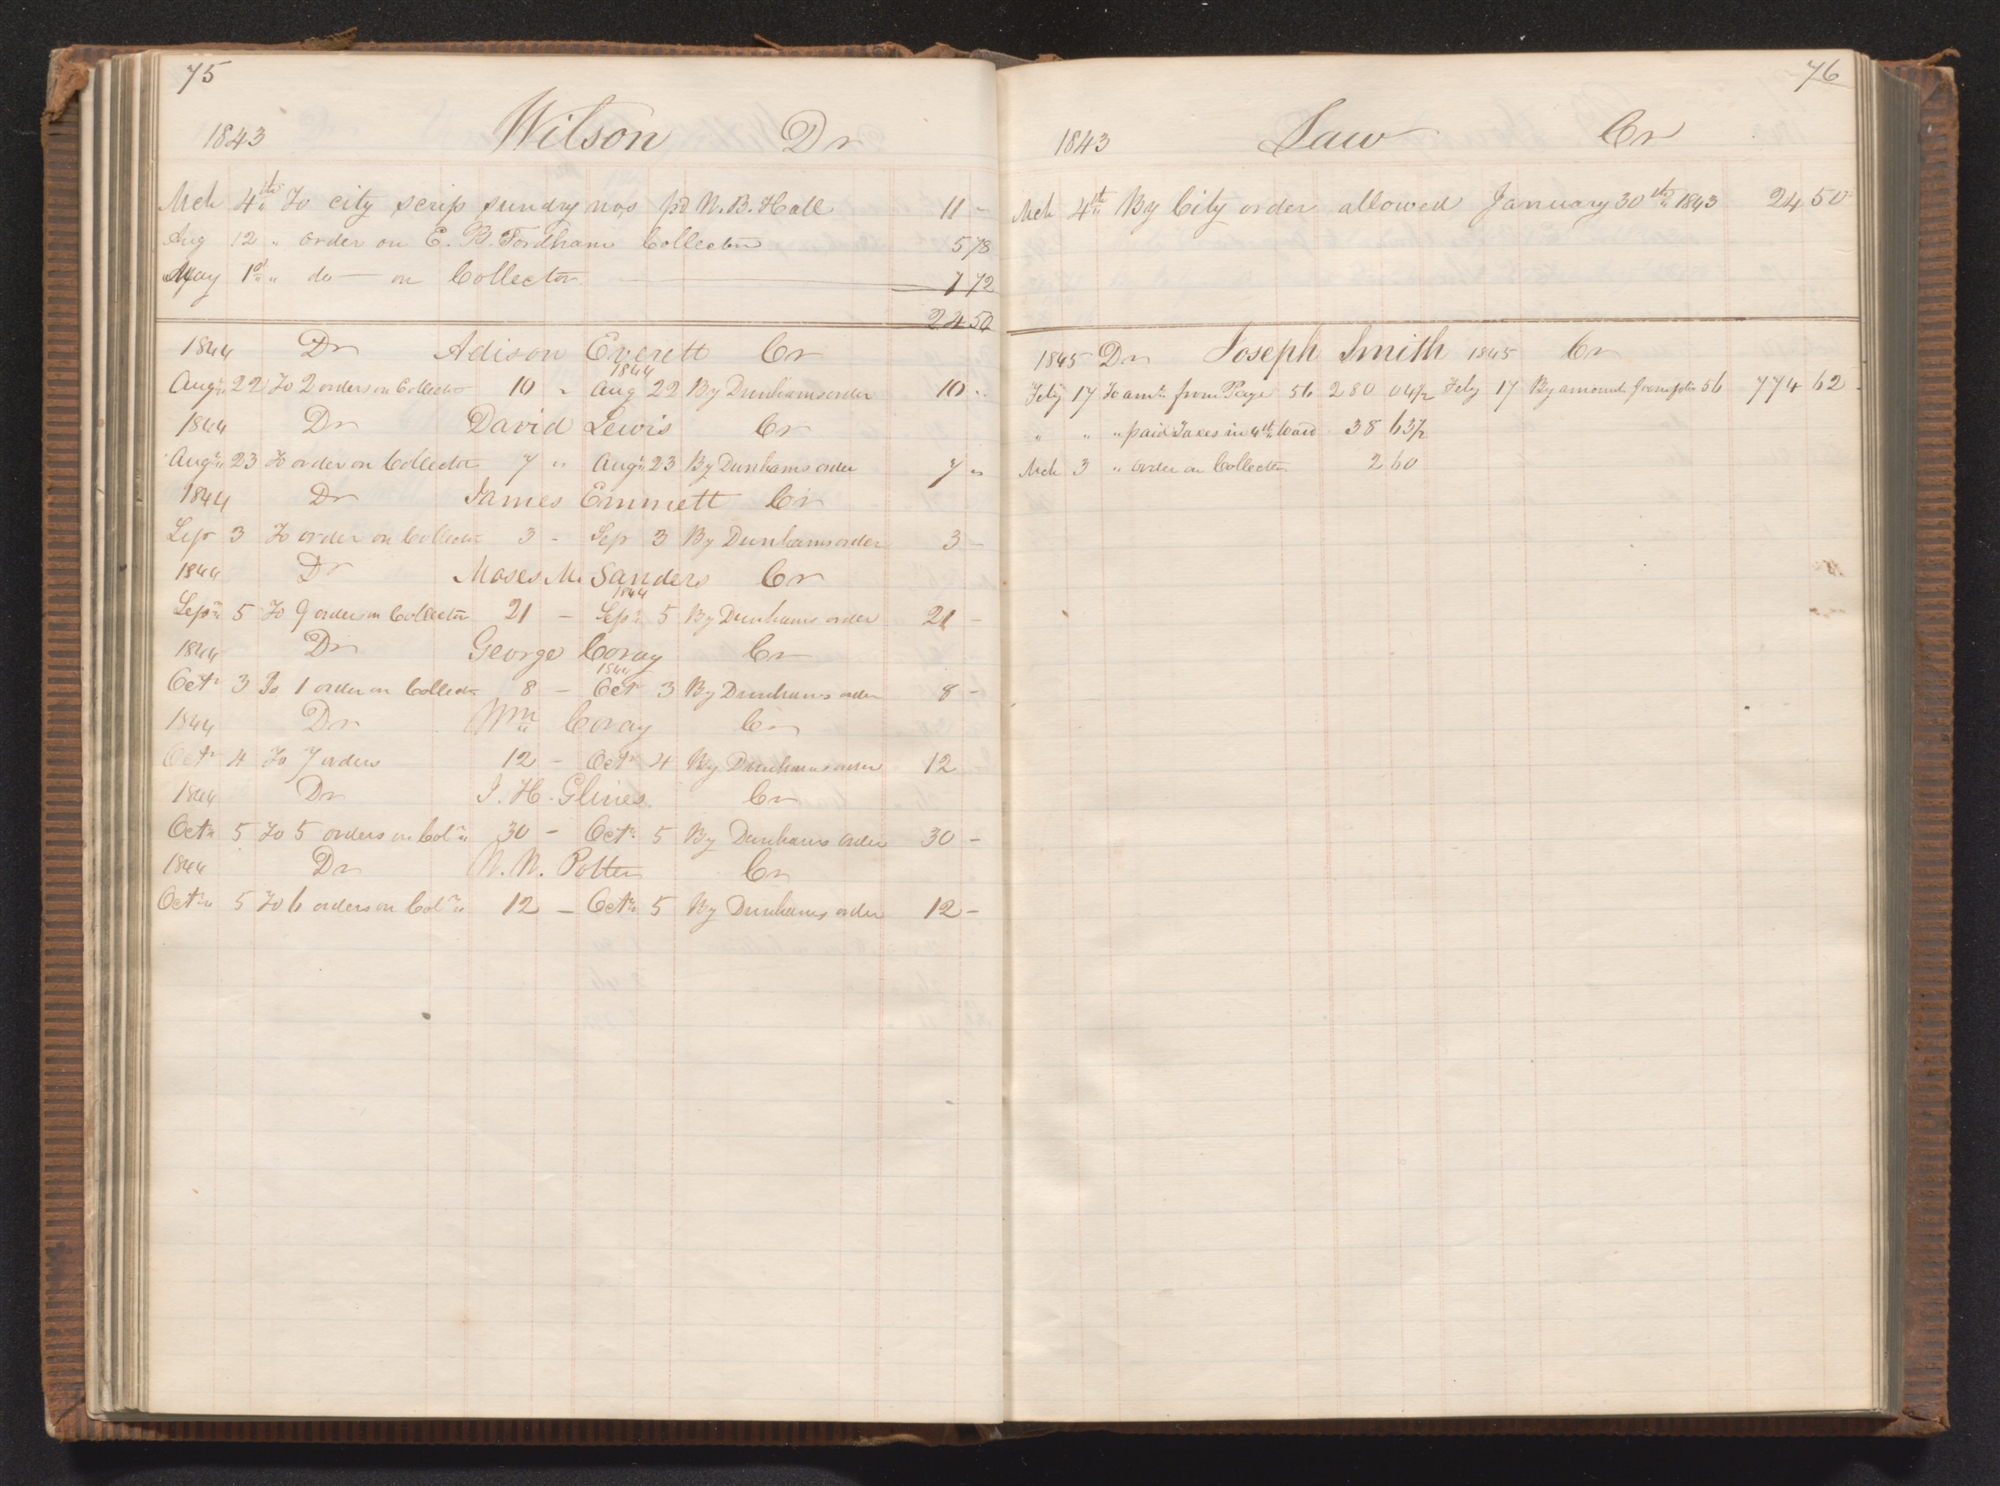 75
1843 Wilson Dr
Mch 4th To city scrip sundry nos pd N. B. Hall 11 -
Aug 12 " order on E. B. Fordham Collector 5 78
May 1st " do on Collector 7 72
24 50
1844 Dr Adison Everett Cr
1844
Augt 22 To 2 orders on Collector 10 " Aug 22 By Dunhams order 10 "
1844 Dr David Lewis Cr
Augt 23 To order on Collector 7 " Augt 23 By Dunhams order 7 "
1844 Dr James Emmett Cr
Sepr 3 To order on Collector 3 - Sep 3 By Dunhams order 3 -
1844 Dr Moses M. Sanders Cr
1844
Sepr 5 To 9 orders on Collector 21 - Sepr 5 By Dunhams order 21 -
1844 Dr George Coray Cr
1844
Octr 3 To 1 order on Collector 8 - Oct 3 By Dunhams order 8 -
1844 Dr Wm Coray Cr
Octr 4 To 7 orders 12 - Octr 4 By Dunhams order 12
1844 Dr J. H. Glines Cr
Octr 5 To 5 orders on Colr 30 - Octr 5 By Dunhams order 30 -
1844 Dr Potter Cr
Octr 5 To 6 orders on Colr 12 - Octr 5 By Dunhams order 12 -
76
1843 Law Cr
Mch 4th By City order allowed January 30th 1843 24 50
1845 Dr Joseph Smith 1845 Cr
Feby 17 To amt from Page 56 280 04½ Feby 17 By amount from page 56 774 62
" " " paid Taxes in 4th Ward 38 63½
Mch 3 " order on Collector 2 60